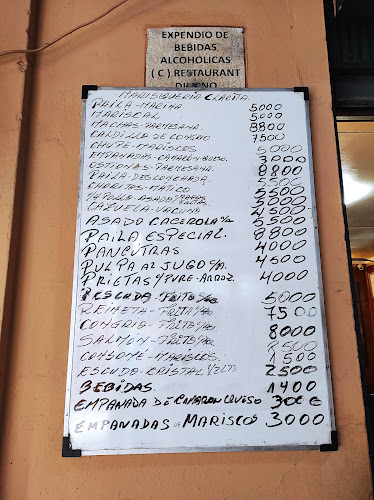 EXPENDIO DE
BEBIDAS
ALCOHOLICAS
( C ) RESTAURANT
DIURNO
MARISQUERIA CLARITA
PAILA-MARINA 5000
MARISCAL 5000
MACHAS-PARMESANA 8800
CALDILLO DE CONGRIO 7500
CHUPE-MARISCOS 5000
EMPANADAS-CAMARON-QUESO 3000
OSTIONES-PARMESANA 8800
PAILA-DESCONCHADA 5500
CHORITOS-MATICO 5500
1/4 POLLO-ASADO 5000
CAZUELA-VACUNO 4500
ASADO CACEROLA 5500
PAILA ESPECIAL. 8800
PANCUTRAS 4000
PULPA AL JUGO 4500
PRIETAS Y PURE-ARROZ. 4000
PESCADA-FRITO 5000
REINETA-FRITO 7500
CONGRIO-FRITO 8000
SALMON-FRITO 7500
CONSOME-MARISCOS. 1500
ESCUDO-CRISTAL 2500
BEBIDAS. 1400
EMPANADA DE CAMARON QUESO 3000
EMPANADAS DE MARISCOS 3000